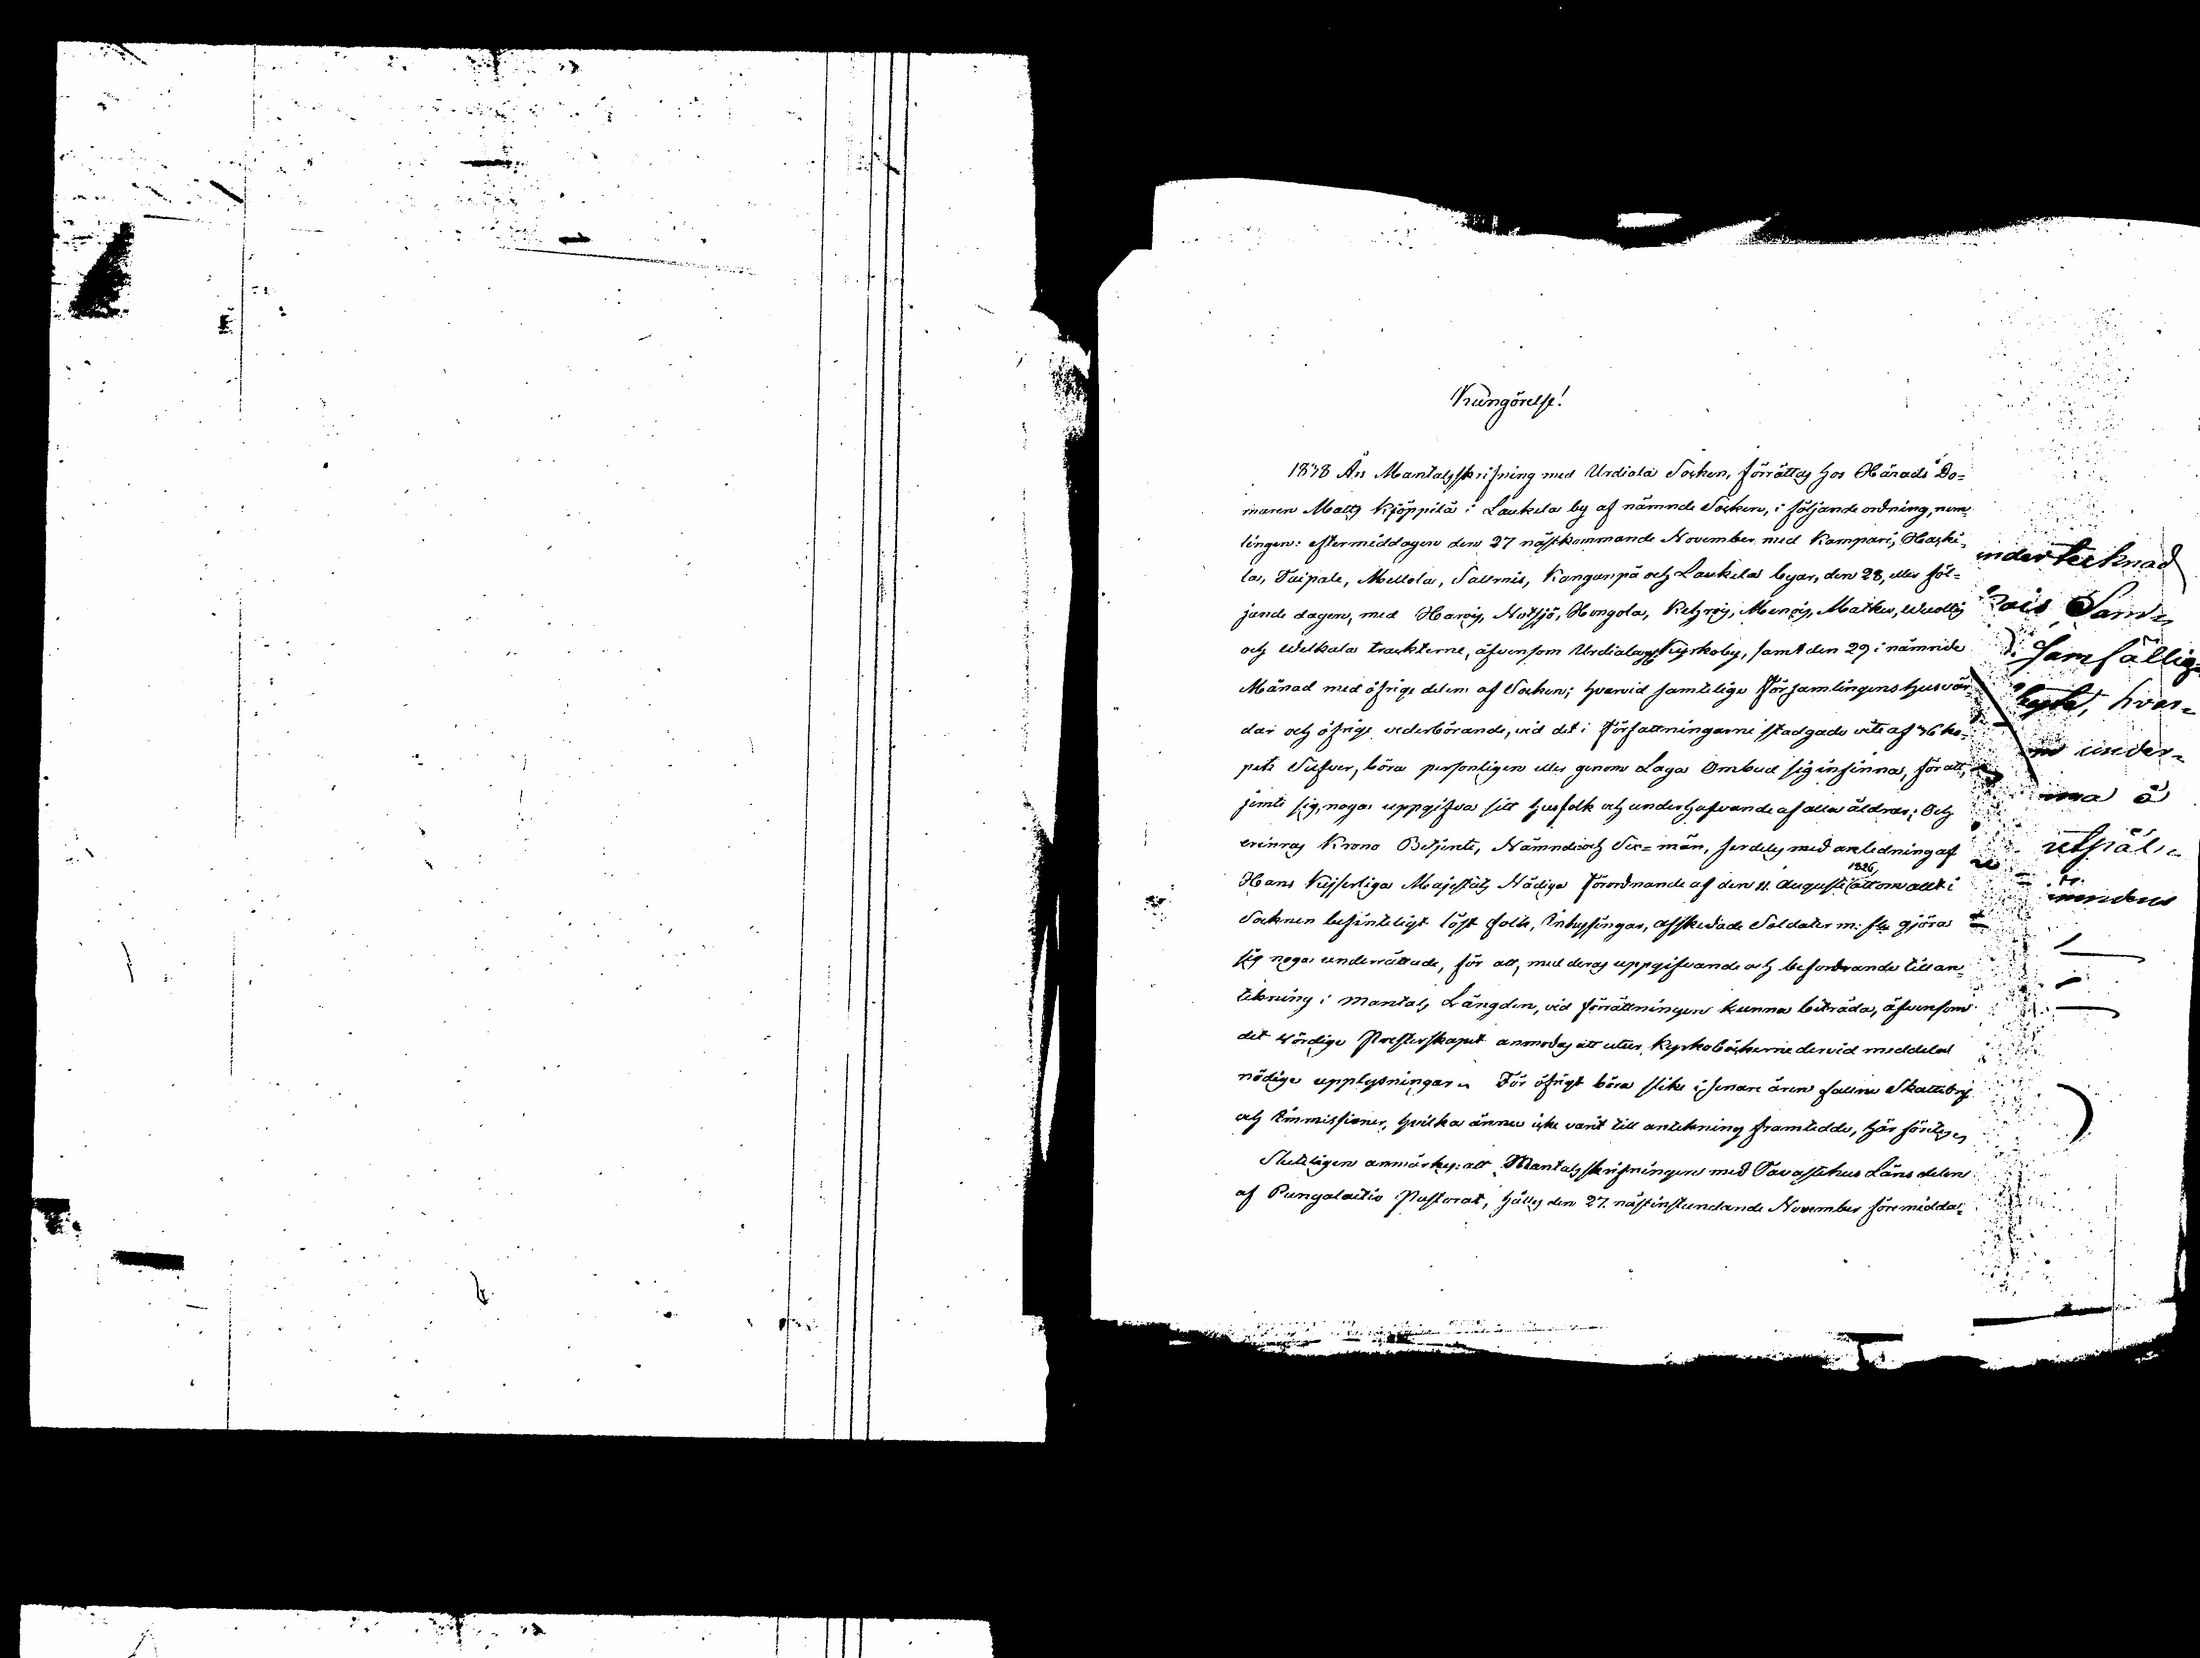 Kungörelse!
1838 Års Mantalsskrifning med Urdiala Socken, förrättas hos Härads Do-
maren Matts Kjöppilä i Laukela by af nämnde Socken, i följande ordning, nem-
ligen: eftermiddagen den 27 nästkommande November med Kampari, Haski-
la, Taipale, Mellola, Salmis, Kanganpä och Laukela byar, den 28, eller föl-
jande dagen, med Notsjö, Hongola, Menois, Matku,
och trackterne, äfvensom Urdiala Kyrkoby, samt den 29 i nämnde
Månad med öfrige delen af Socken; hvarvid samtelige Församlingens husvär-
dar och öfrige vederbörande, vid det i Författningarne stadgade vite af 36 ko-
pek Silfver, böra personligen eller genom Laga Ombud sig infinna, för att,
jemte sig, noga uppgifva sitt husfolk och underhafvande af alla åldrar; Och
erinras Krono Betjente, Nämnde och Sex-män, serdeles med anledning af
Hans Kejserliga Majestäts Nådiga Förordnande af den 11. Augusti 1826, att om allt i
Socknen befinteligt löst folk, Inhysingar, afskedade Soldater m: fl: gjöra
sig noga underrättade, för att, med deras uppgifvande och befordrande till an-
tekning i Mantals Längden, vid förrättningen kunna biträda, äfvensom
det wördige Presterskapet anmodas att utur Kyrkoböckerne dervid meddela
nödige upplysningar. För öfrigt böra slike i senare åren fallne Skattebref
och Immissioner, hvilka ännu icke varit till antekning framtedde, här företes
Sluteligen anmärkes: att Mantalsskrifningen med Tavastehus Läns delen
af Pungalaitio Pastorat, hålles den 27. nästinstundande November förmidda-
undertecknad
Sam-
Samfällig-
hvar-
under-
å